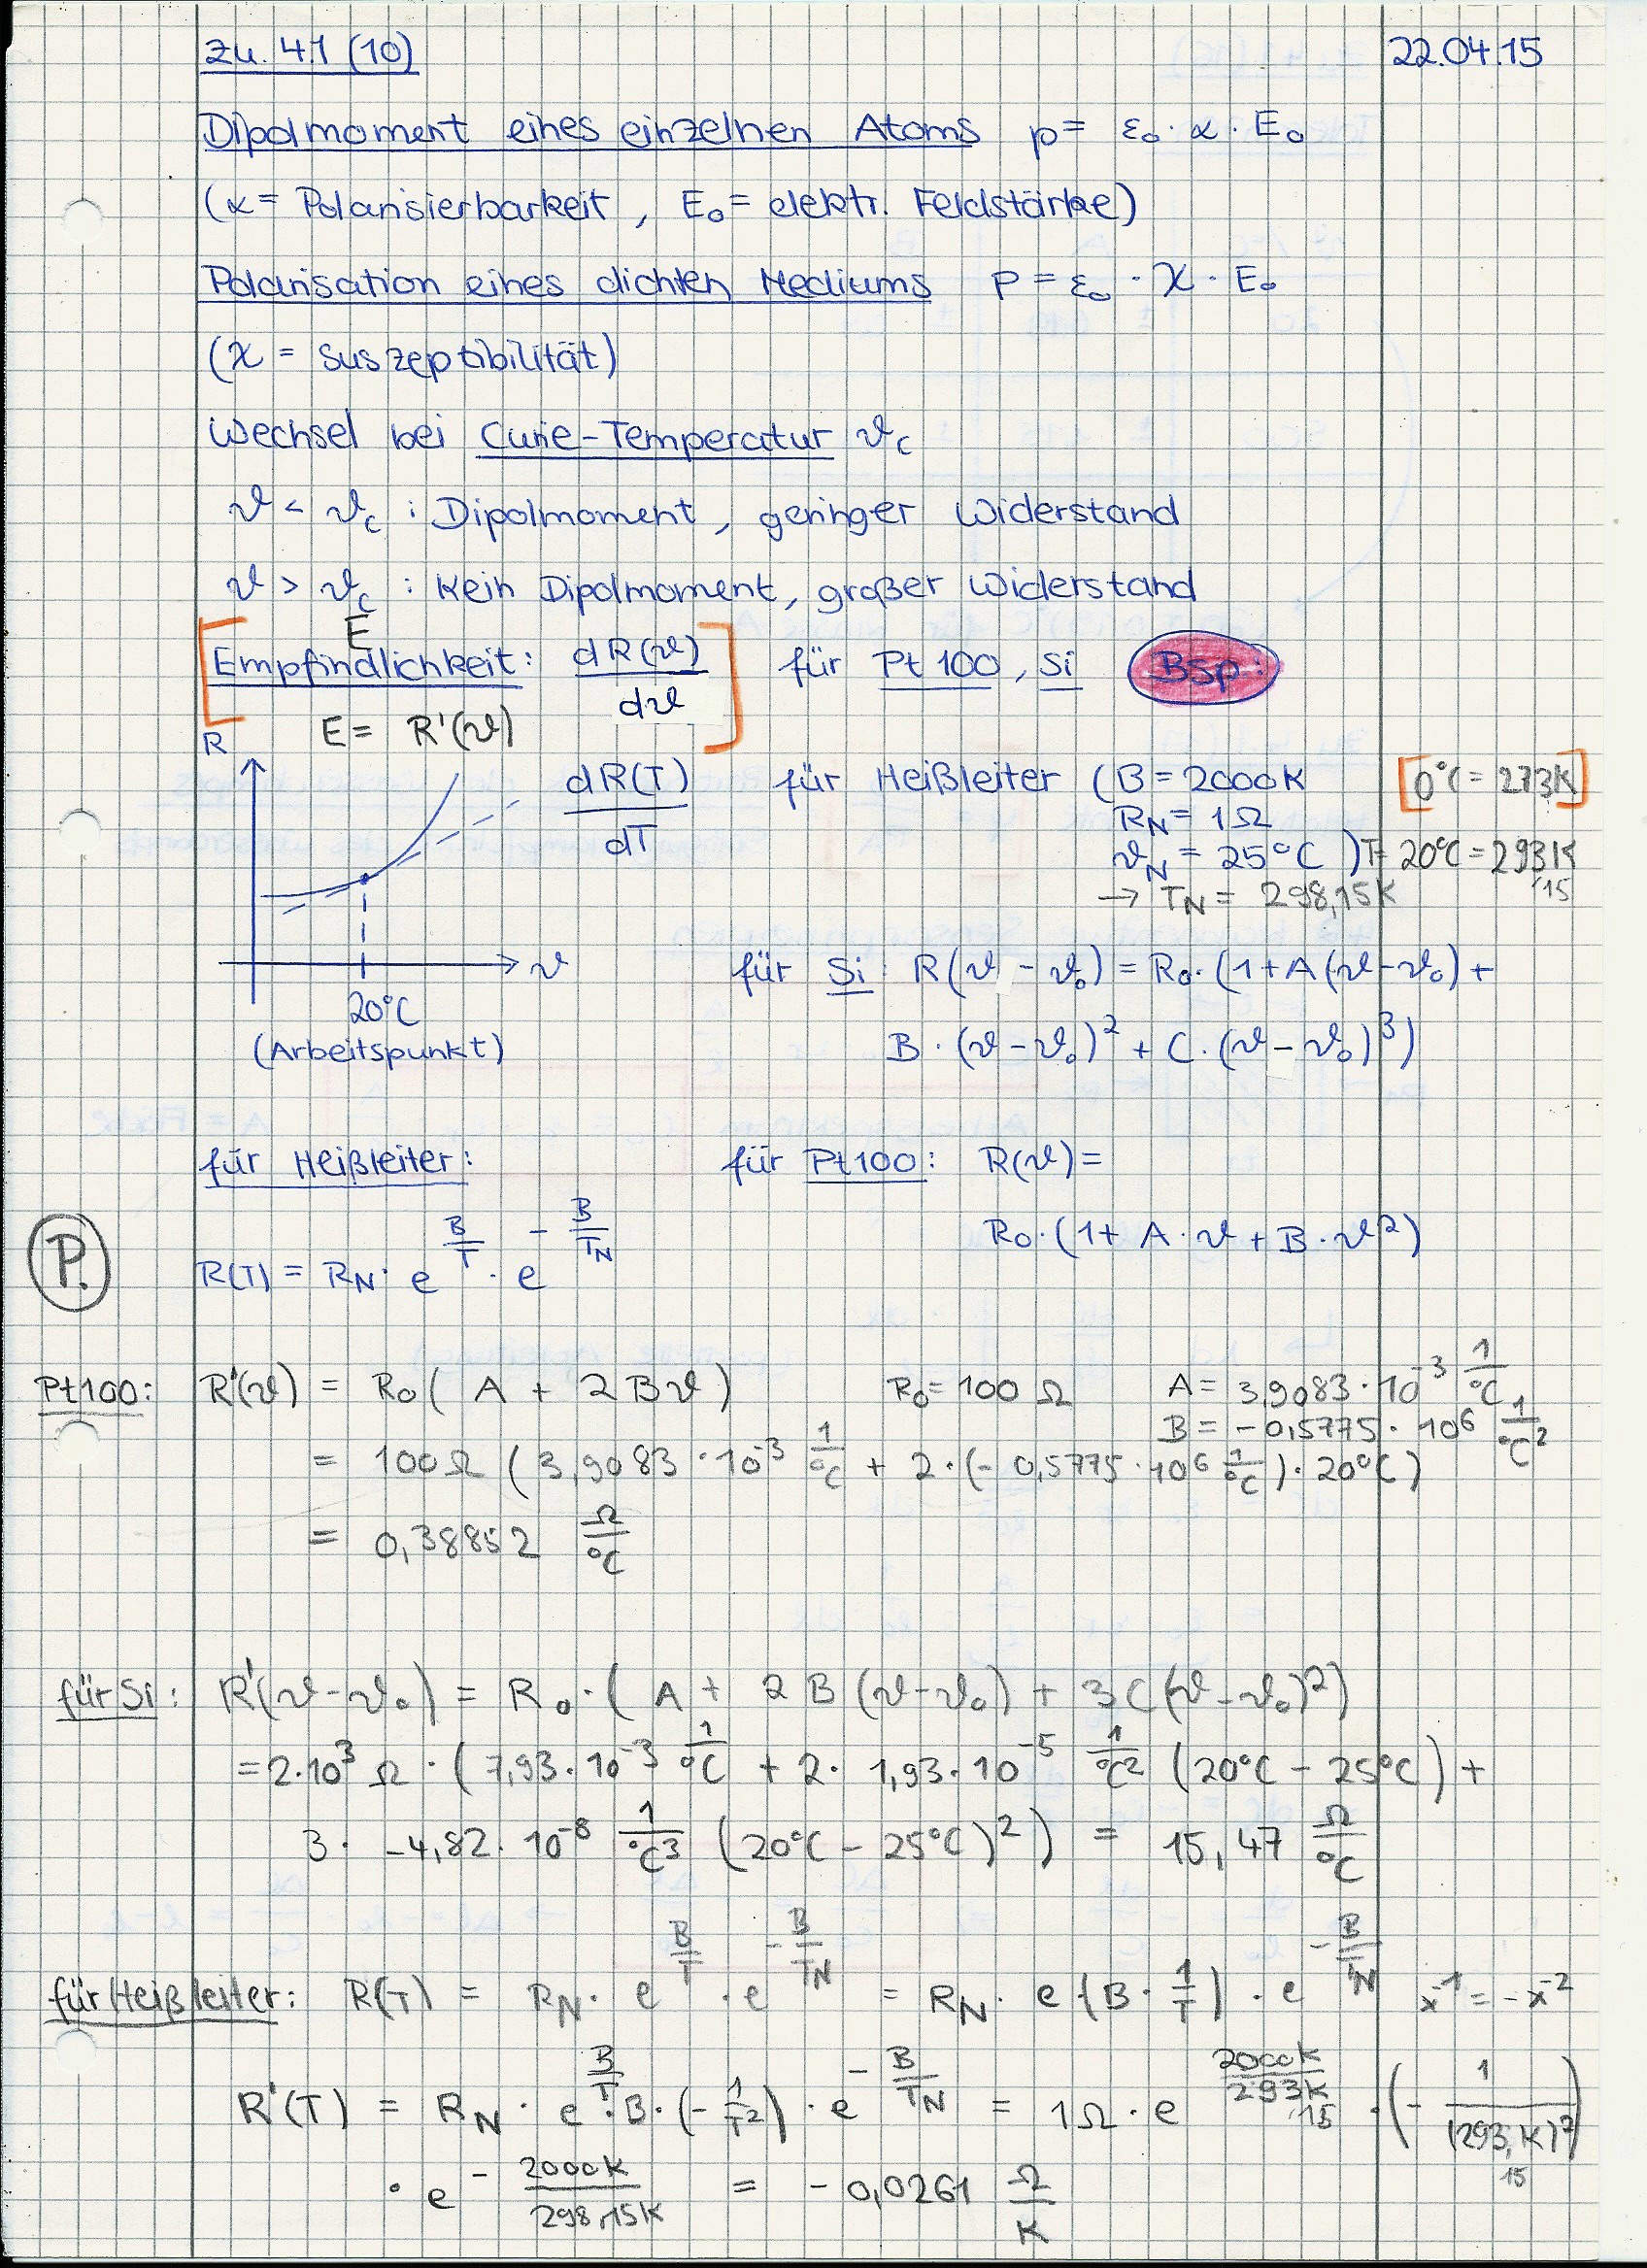 zu. 4.1 (10) 22.04.15
Dipolmoment eines einzelnen Atoms p = ε₀ · α · E₀
(α = Polarisierbarkeit, E₀ = elektr. Feldstärke)
Polarisation eines dichten Mediums P = ε₀ · χ · E₀
(χ = Suszeptibilität)
Wechsel bei Curie-Temperatur ϑc
ϑ < ϑc : Dipolmoment, geringer Widerstand
ϑ > ϑc : Kein Dipolmoment, großer Widerstand
E
[Empfindlichkeit: dR(ϑ)/dϑ] für Pt 100, Si Bsp.:
E = R'(ϑ)
R
dR(T)/dT für Heißleiter (B = 2000K [0°C = 273K]
R_N = 1Ω
ϑ_N = 25°C ) T = 20°C = 293,15K
→ T_N = 298,15K
ϑ
20°C
(Arbeitspunkt)
für Si: R(ϑ - ϑ₀) = R₀ · (1 + A(ϑ - ϑ₀) +
B · (ϑ - ϑ₀)² + C · (ϑ - ϑ₀)³)
für Heißleiter: für Pt100: R(ϑ) =
R₀ · (1 + A · ϑ + B · ϑ²)
P.
R(T) = R_N · e^(B/T) · e^(-B/T_N)
Pt100: R'(ϑ) = R₀ ( A + 2Bϑ ) R₀ = 100 Ω A = 3,9083 · 10⁻³ 1/°C
B = -0,5775 · 10⁶ 1/°C²
= 100Ω (3,9083 · 10⁻³ 1/°C + 2 · (-0,5775 · 10⁶ 1/°C) · 20°C)
= 0,38852 Ω/°C
für Si: R'(ϑ - ϑ₀) = R₀ · ( A + 2B (ϑ - ϑ₀) + 3C (ϑ - ϑ₀)²)
= 2·10³ Ω · (7,93 · 10⁻³ 1/°C + 2 · 1,93 · 10⁻⁵ 1/°C² (20°C - 25°C) +
3 · -4,82 · 10⁻⁸ 1/°C³ (20°C - 25°C)²) = 15,47 Ω/°C
für Heißleiter: R(T) = R_N · e^(B/T) · e^(-B/T_N) = R_N · e (B · 1/T) · e^(-B/T_N) x⁻¹ = -x⁻²
R'(T) = R_N · e^(B/T) · B · (-1/T²) · e^(-B/T_N) = 1Ω · e^(2000K/293,15K) · (-1/(293,15K)²)
· e^(-2000K/298,15K) = -0,0261 Ω/K